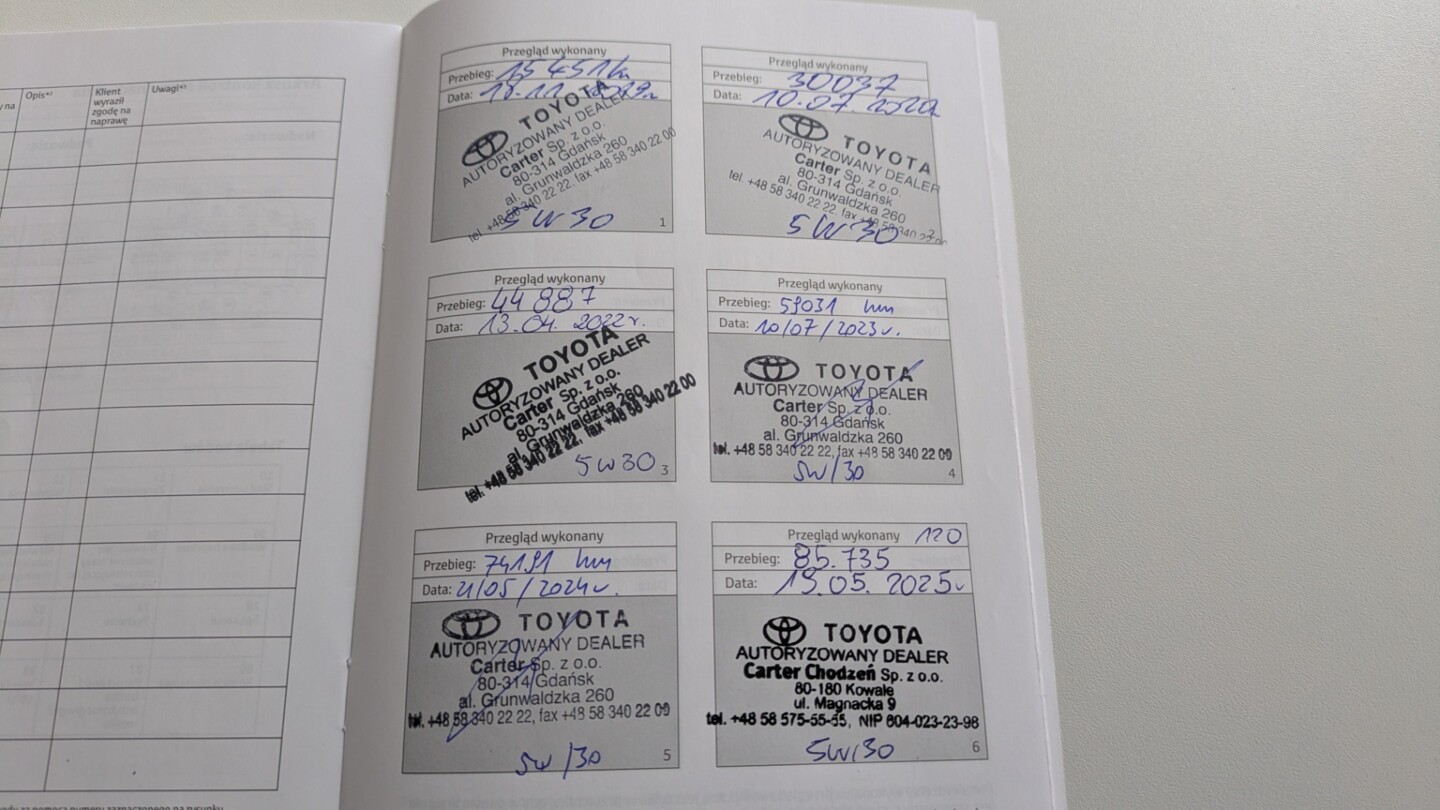 y na
Opis*²⁾
Klient
wyraził
zgodę na
naprawę
Uwagi*³⁾
Przegląd wykonany
Przebieg: 15 451 km
Data: 18.11.
TOYOTA
AUTORYZOWANY DEALER
Carter Sp. z o.o.
80-314 Gdańsk
al. Grunwaldzka 260
tel. +48 58 340 22 22. fax +48 58 340 22 00
5W30
1
Przegląd wykonany
Przebieg: 30037
Data: 10.07
TOYOTA
AUTORYZOWANY DEALER
Carter Sp. z o.o.
80-314 Gdańsk
al. Grunwaldzka 260
tel. +48 58 340 22 22. fax +48 58 340 22 00
5W30
2
Przegląd wykonany
Przebieg: 44 887
Data: 13.04. 2022r.
TOYOTA
AUTORYZOWANY DEALER
Carter Sp. z o.o.
80-314 Gdańsk
al. Grunwaldzka 260
tel. +48 58 340 22 22, fax +48 58 340 22 00
5W30
3
Przegląd wykonany
Przebieg: 59031 km
Data: 10/07/2023r.
TOYOTA
AUTORYZOWANY DEALER
Carter Sp. z o.o.
80-314 Gdańsk
al. Grunwaldzka 260
tel. +48 58 340 22 22, fax +48 58 340 22 00
5W/30
4
Przegląd wykonany
Przebieg: 74191 km
Data: 21/05/2024r.
TOYOTA
AUTORYZOWANY DEALER
Carter Sp. z o.o.
80-314 Gdańsk
al. Grunwaldzka 260
tel. +48 58 340 22 22, fax +48 58 340 22 00
5W/30
5
Przegląd wykonany 120
Przebieg: 85.735
Data: 19.05. 2025r
TOYOTA
AUTORYZOWANY DEALER
Carter Chodzeń Sp. z o.o.
80-180 Kowale
ul. Magnacka 9
tel. +48 58 575-55-55, NIP 604-023-23-98
5W/30
6